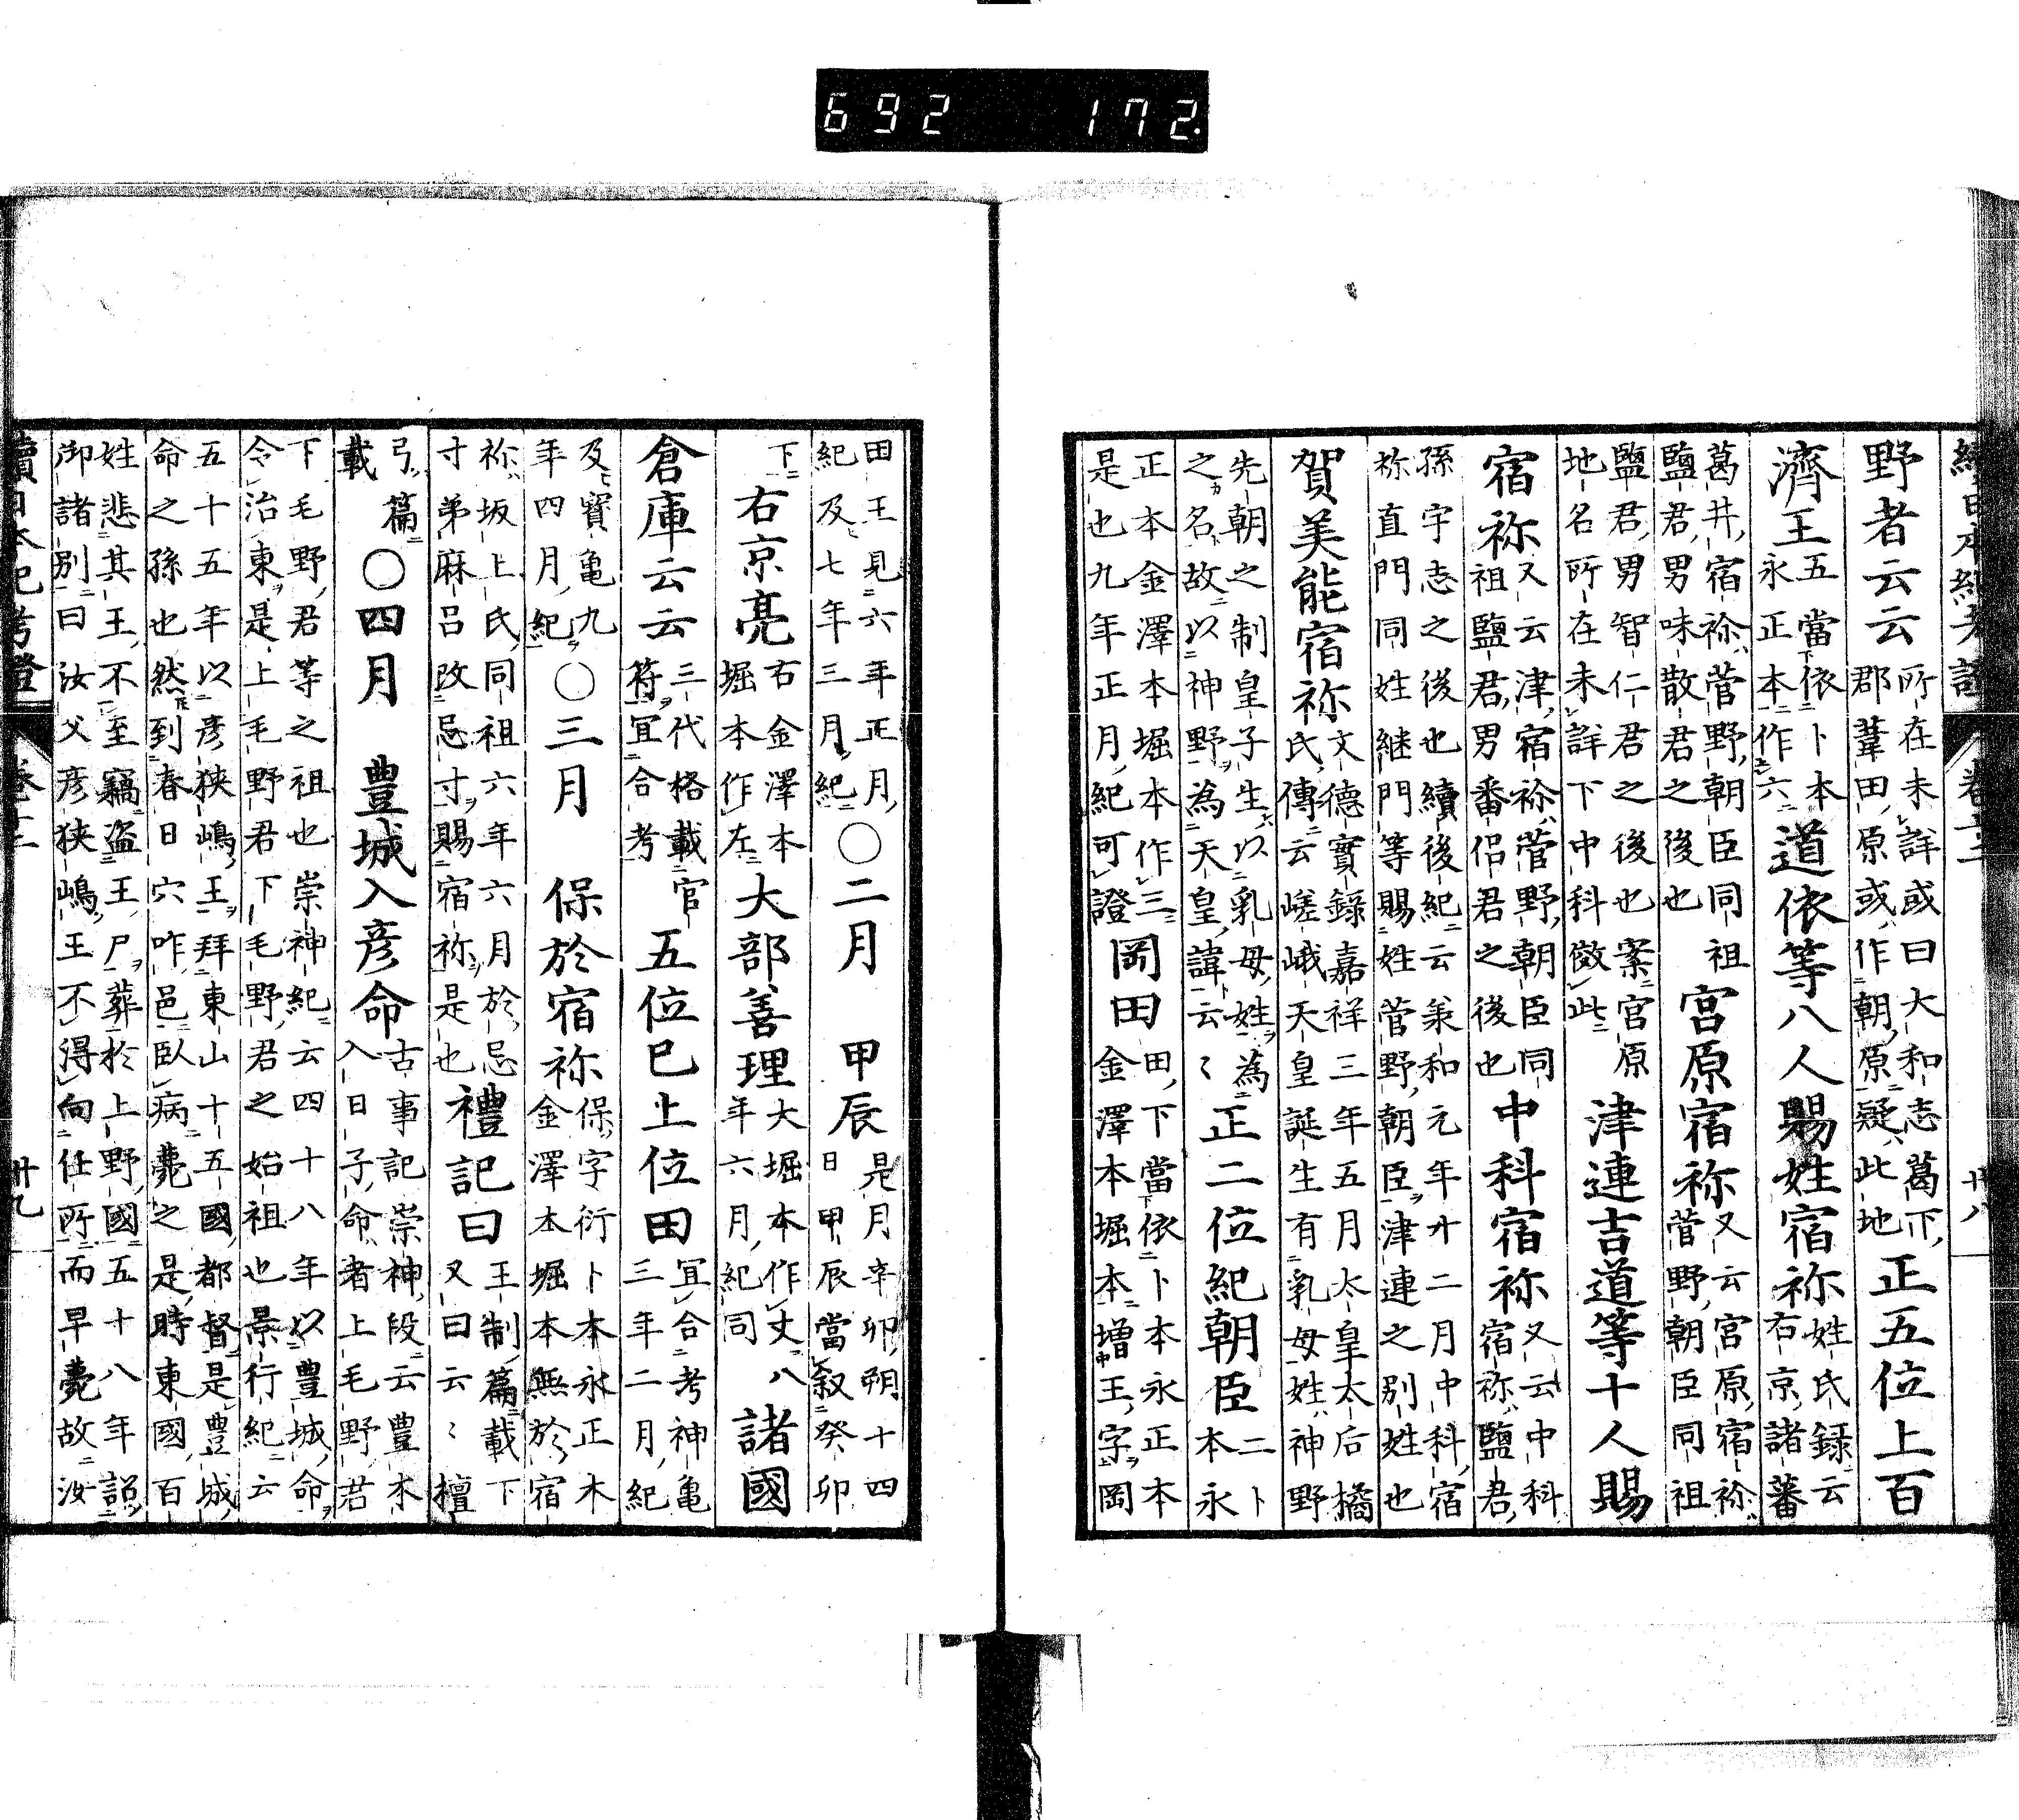 692 172.
續日本紀考證 卷十二 廿八
野者云云 所在未詳或曰大和志葛下
郡葦田原或作朝原疑此地 正五位上百
濟王 五當依卜本
永正本作六 道依等八人賜姓宿祢 姓氏録云
右京諸蕃
葛井宿祢菅野朝臣同祖
鹽君男味散君之後也 宮原宿祢 又云宮原宿祢
菅野朝臣同祖
鹽君男智仁君之後也案宮原
地名所在未詳下中科倣此 津連吉道等十人賜
宿祢 又云津宿祢菅野朝臣同
祖鹽君男番侶君之後也 中科宿祢 又云中科
宿祢鹽君
孫宇志之後也續後紀云兼和元年廾二月中科宿
祢直門同姓継門等賜姓菅野朝臣津連之別姓也
賀美能宿祢 文德實錄嘉祥三年五月太皇太后橘
氏傳云嵯峨天皇誕生有乳母姓神野
先朝之制皇子生以乳母姓為
之名故以神野為天皇諱云〻 正二位紀朝臣 二卜
本永
正本金澤本堀本作三
是也九年正月紀可證 岡田 田下當依卜本永正本
金澤本堀本增王字岡
田王見六年正月
紀及七年三月紀 〇二月 甲辰 是月辛卯朔十四
日甲辰當叙癸卯
下 右京亮 右金澤本
堀本作左 大部善理 大堀本作丈八
年六月紀同 諸國
倉庫云云 三代格載官
符宜合考 五位已上位田 宜合考神龜
三年二月紀
及寶亀九
年四月紀 〇三月 保於宿祢 保字衍卜本永正木
金澤本堀本無於宿
祢坂上氏同祖六年六月於忌
寸弟麻呂改忌寸賜宿祢是也 禮記曰 王制篇載下
又曰云〻檀
弓篇
載 〇四月 豊城入彦命 古事記崇神段云豊木
入日子命者上毛野君
下毛野君等之祖也崇神紀云四十八年以豊城命
令治東是上毛野君下毛野君之始祖也景行紀云
五十五年以彦狭嶋王拜東山十五國都督是豊城
命之孫也然到春日穴咋邑臥病薨之是時東國百
姓悲其王不至竊盗王尸葬於上野國五十八年詔
御諸別曰汝父彦狭嶋王不得向任所而早薨故汝
續日本紀考證 卷十二 廿九